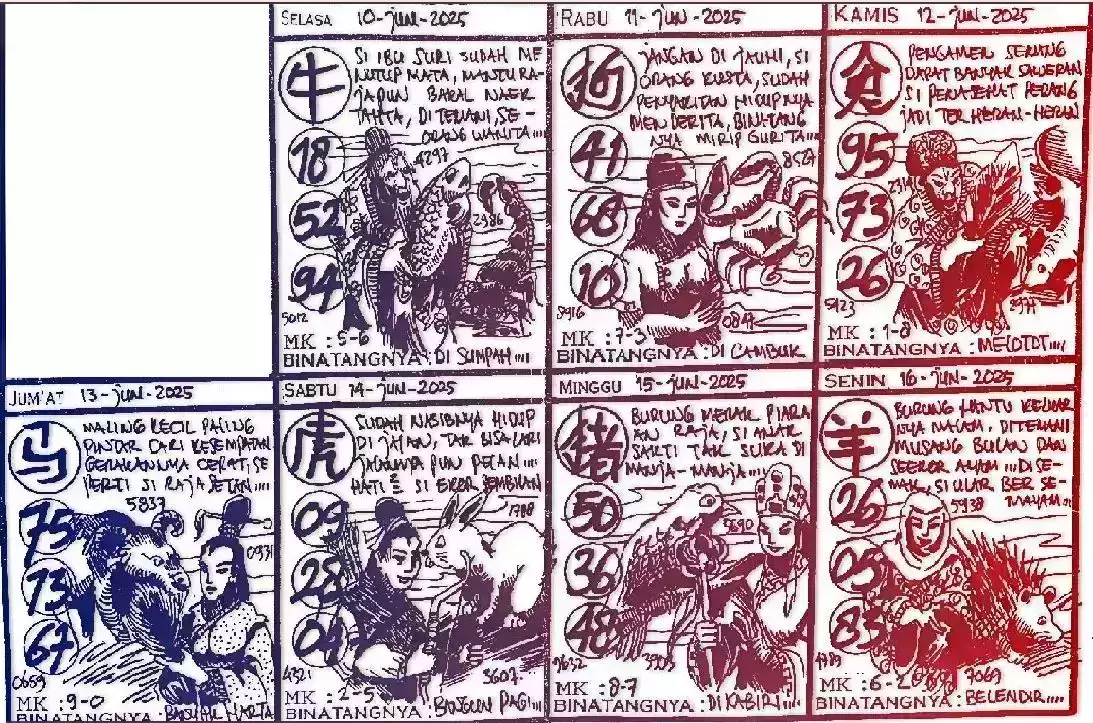 SELASA 10-JUN-2025
牛
SI IBU SURI SUDAH ME
NUTUP MATA, MANTU RA-
JAPUN BAKAL NAEK
TAHTA, DITEMANI, SE-
ORANG WANITA....
18
4297
52
2386
94
5012
MK : 5-6
BINATANGNYA : DI SUMPAH....
RABU 11-JUN-2025
狗
JANGAN DI JAUHI, SI
ORANG KUSTA, SUDAH
PENYAKITAN HIDUPNYA
MENDERITA, BINATANG
NYA MIRIP GURITA....
41
8527
68
10
8916
0847
MK : 7-3
BINATANGNYA : DI CAMBUK
KAMIS 12-JUN-2025
PENGAMEN SENANG
DAPAT BANYAK SAWERAN
SI PENASEHAT PERANG
JADI TER HERAN-HERAN
95
73
26
5923
MK : 1-8
BINATANGNYA : MELOTOT....
JUM'AT 13-JUN-2025
马
MALING KECIL PALING
PINTAR CARI KESEMPATAN
GERAKANNYA CEPAT, SE
PERTI SI RAJA SETAN....
5837
75
0931
73
67
0689
MK : 9-0
BINATANGNYA : HARTA
SABTU 14-JUN-2025
虎
SUDAH NASIBNYA HIDUP
DI JALAN, TAK BISA LARI
JALANNYA PUN PELAN....
HATI = SI EKOR SEMBILAN
1788
09
28
04
4321
3607
MK : 2-5
BINATANGNYA : BANGUN PAGI....
MINGGU 15-JUN-2025
猪
BURUNG MERAK PIARA
AN RAJA, SI ANAK
SAKTI TAK SUKA DI
MANJA-MANJA....
50
5690
36
48
9632
MK : 8-7
BINATANGNYA : DI KABIRI....
SENIN 16-JUN-2025
羊
BURUNG HANTU KELUAR
NYA MALAM, DITEMANI
MUSANG BULAN DAN
SEEKOR AYAM.... DI SE-
MAK, SI ULAR BER SE-
MAYAM...
5938
26
05
83
4789
7069
MK : 6-2
BINATANGNYA : BELENDIR....